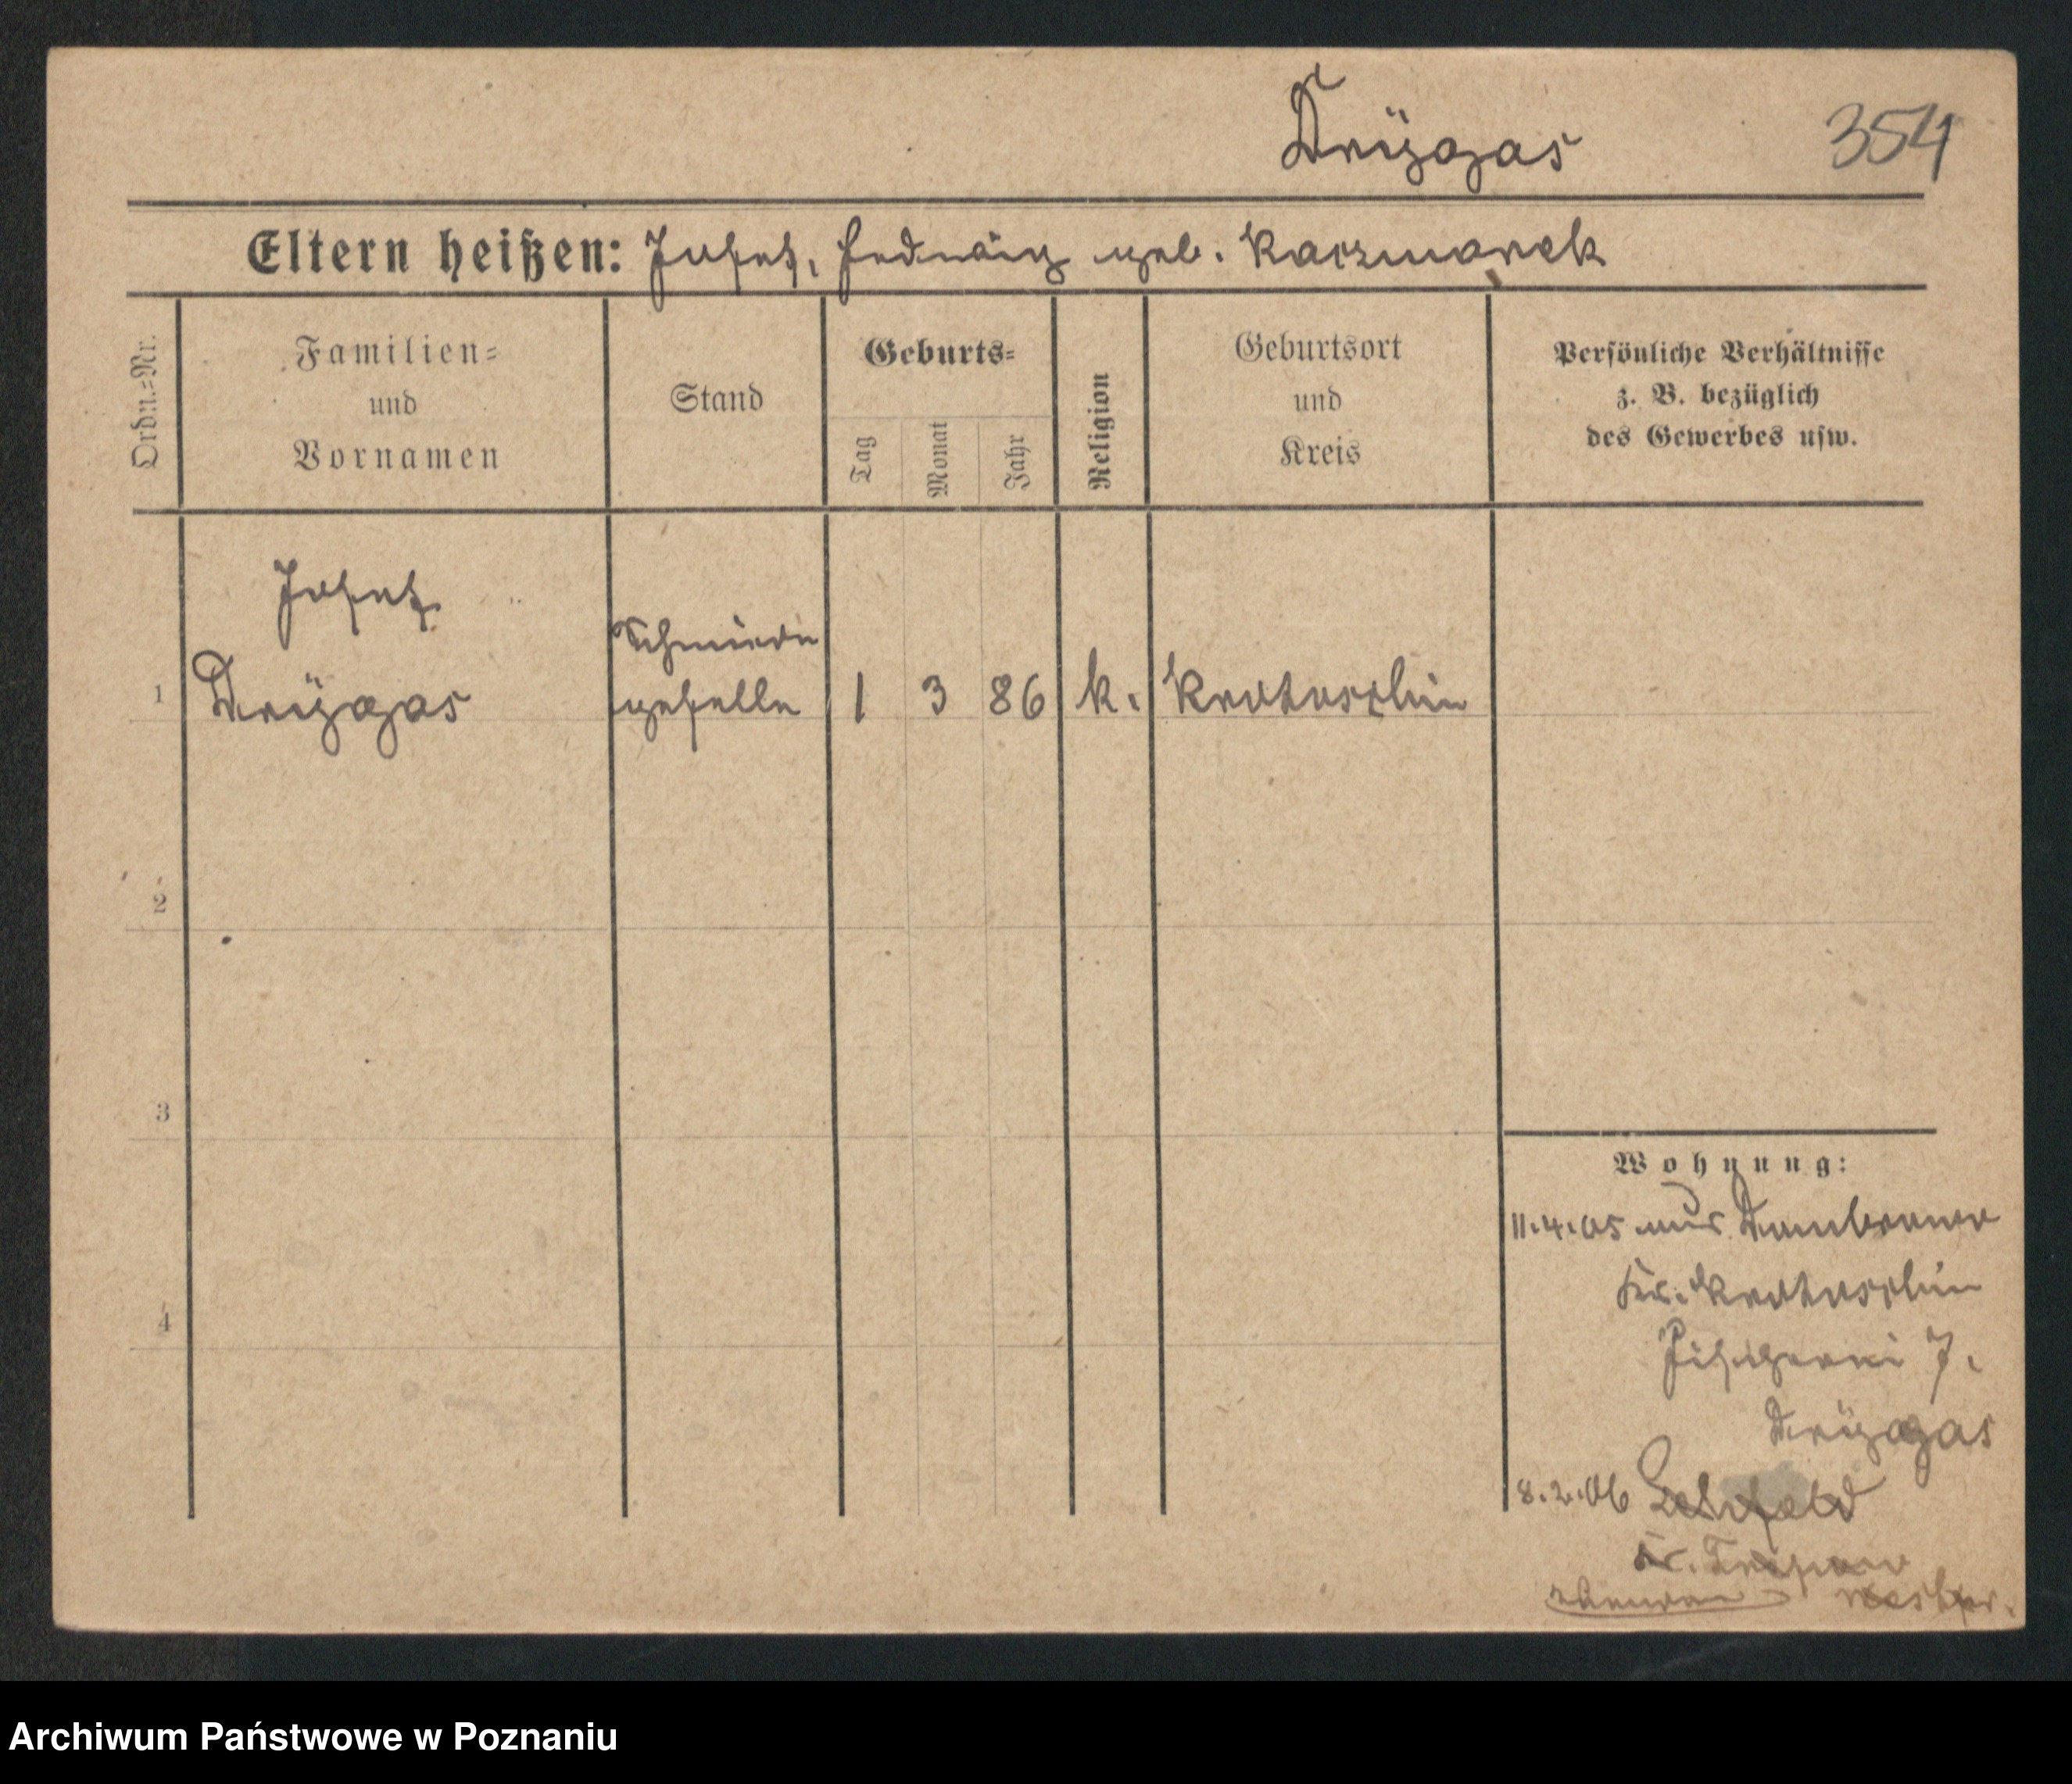 Drÿgas
354
Eltern heißen: Josef, Hedwig geb. Kaczmarek
Ordn.=Nr.
Familien=
und
Vornamen
Stand
Geburts=
Tag
Monat
Jahr
Religion
Geburtsort
und
Kreis
Persönliche Verhältnisse
z. B. bezüglich
des Gewerbes usw.
Josef
Schmiede
1 Drÿgas geselle 1 3 86 k. Krotoschin
2
3
4
Wohnung:
11.4.05 aus
Kr. Krotoschin
Fischerei 7.
Drÿgas
8.2.06
Kr.
Westpr.
Archiwum Państwowe w Poznaniu